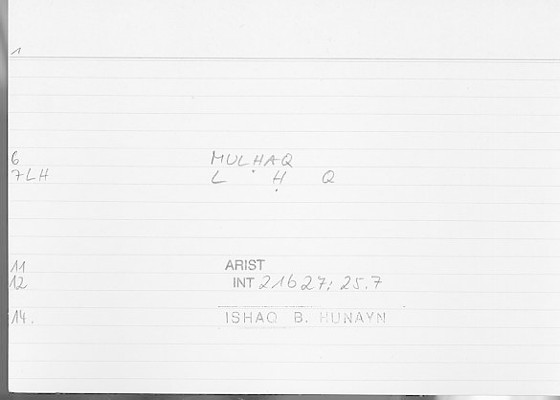 1
6 MULḤAQ
7LH L Ḥ Q
11 ARIST
12 INT 21b27; 25.7
14. ISHAQ B. HUNAYN